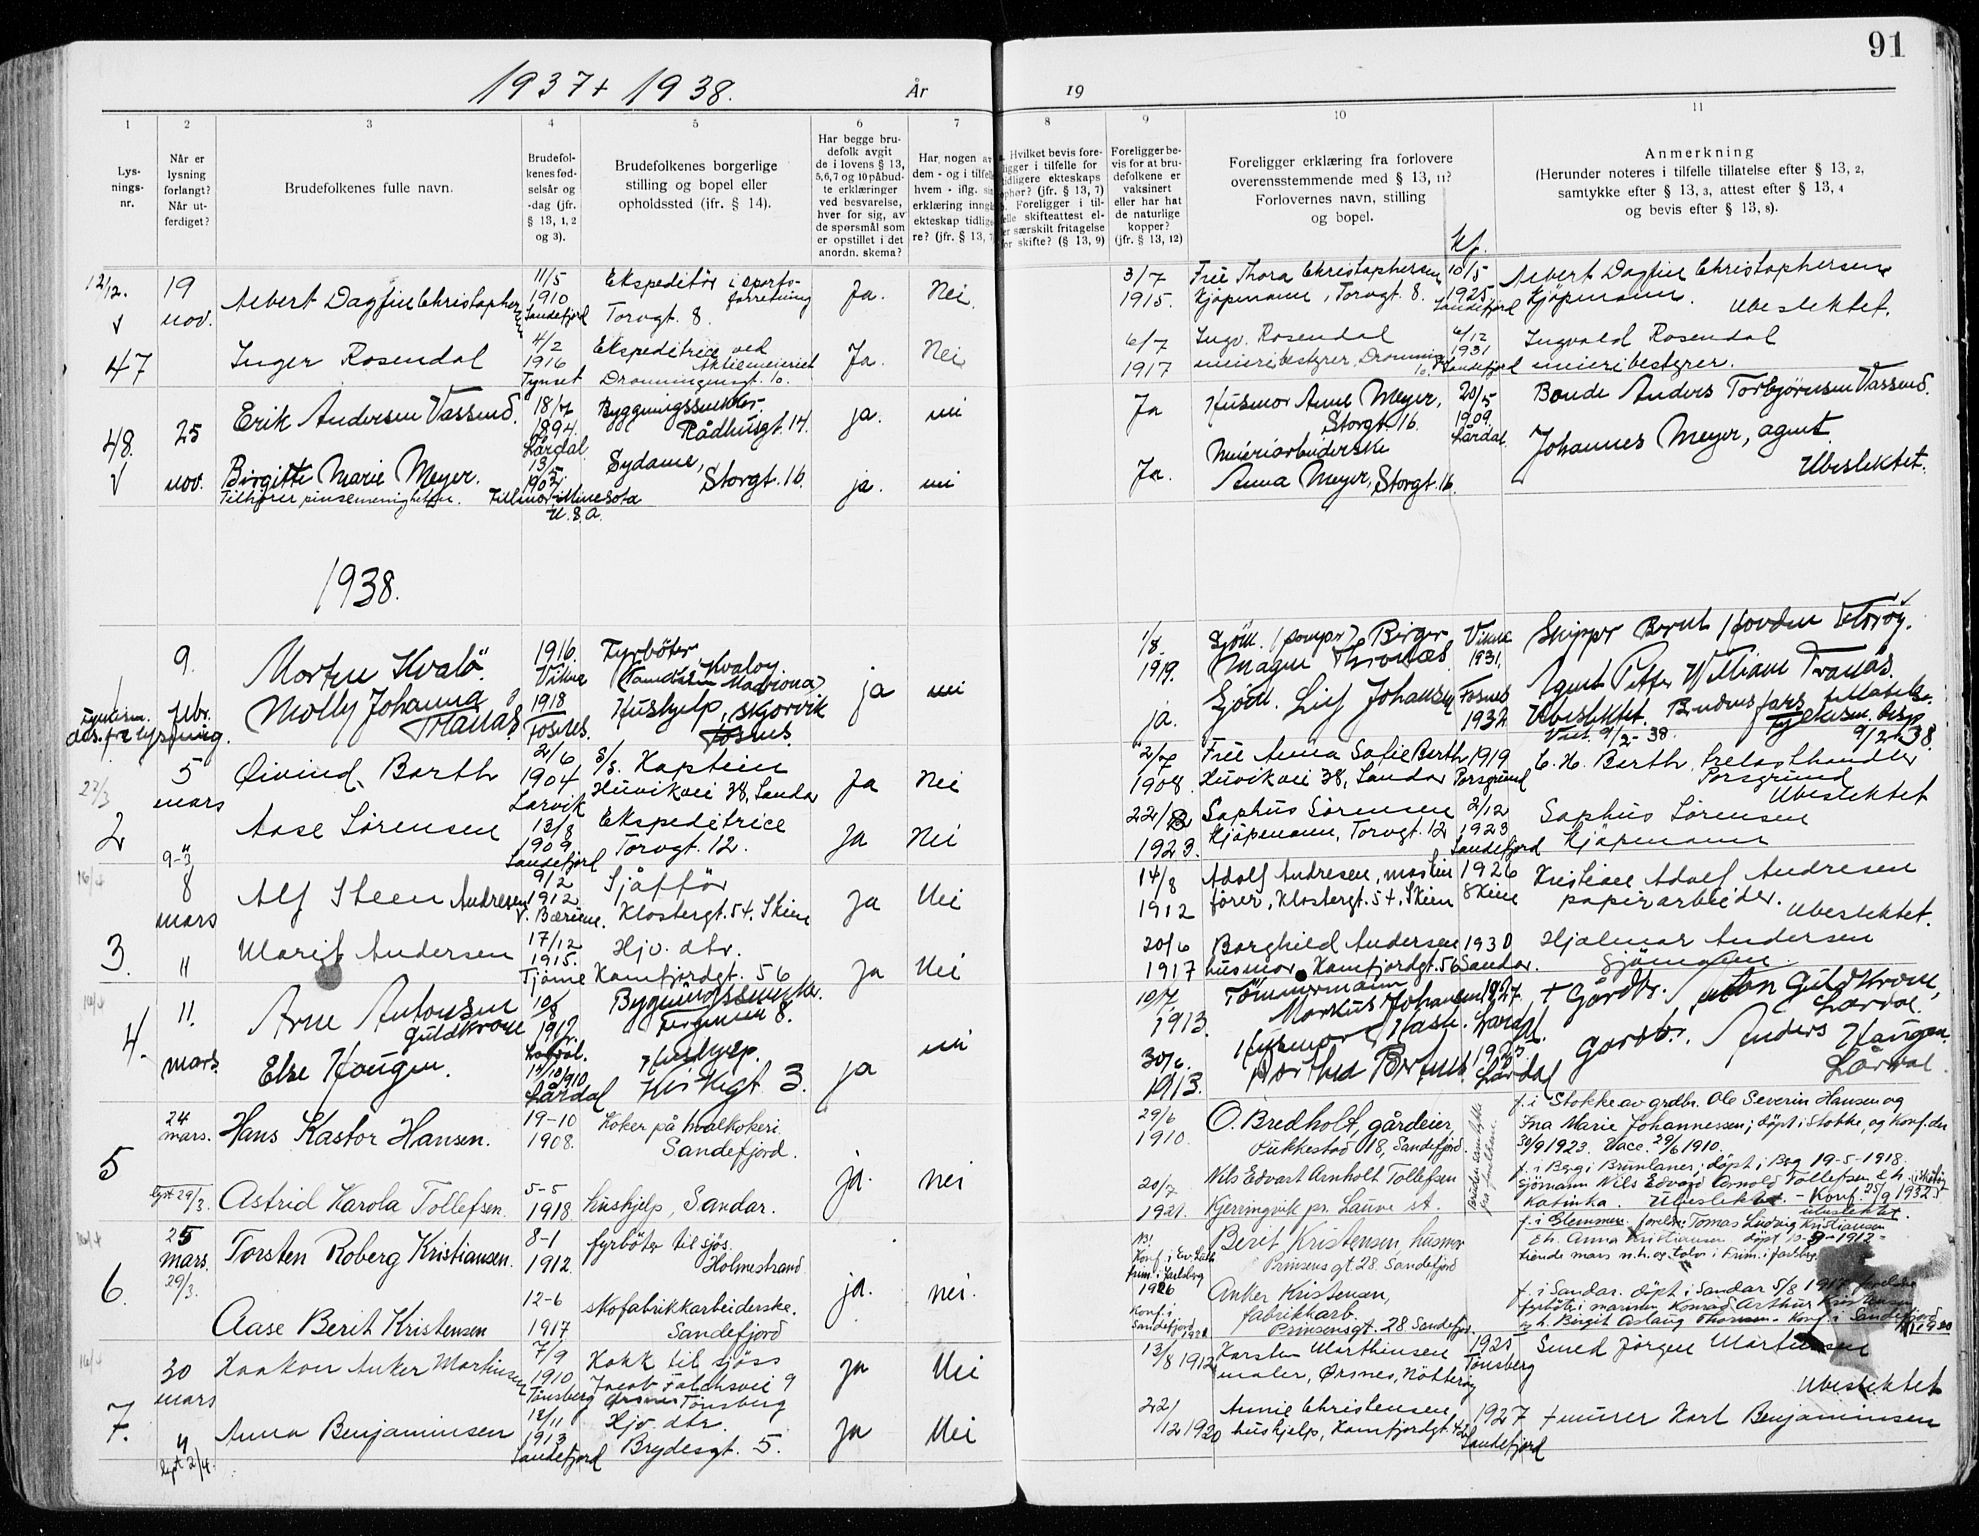 91
1937 + 1938.
År
19
1
2
3
4
5
6
7
8
9
10
11
Lys-
nings-
nr.
Når er
lysning
forlangt?
Når ut-
ferdiget?
Brudefolkenes fulle navn.
Brudefol-
kenes fød-
selsår og
-dag (jfr.
§ 13, 1, 2
og 3).
Brudefolkenes borgerlige
stilling og bopel eller
opholdssted (ifr. § 14).
Har begge bru-
defolk avgit
de i lovens § 13,
5,6,7 og 10 påbud-
te erklæringer
ved besvarelse,
hver for sig, av
de spørsmål som
er opstillet i det
anordn. skema?
Har nogen av
dem - og i tilfelle
hvem - iflg. sin
erklæring inngått
ekteskap tidlige-
re? (jfr. § 13,
Hvilket bevis fore-
ligger i tilfelle for
tidligere ekteskaps
ophør? (jfr. § 13, 7)
Foreligger i til-
felle skifteattest el-
er særskilt fritagelse
for skifte? (§ 13, 9)
Foreligger be-
vis for at bru-
defolkene er
vaksinert
eller har hat
de naturlige
kopper?
(jfr. § 13, 12)
Foreligger erklæring fra forlovere
overensstemmende med § 13, 11?
Forlovernes navn, stilling
og bopel.
Anmerkning
(Herunder noteres i tilfelle tillatelse efter § 13, 2,
samtykke efter § 13, 3, attest efter § 13, 4
og bevis efter § 13, 8).
12/12.
19
nov.
Albert Dagfin Christophersen
11/5
1910
Sandefjord
Ekspeditör i sports-
forretning
Torvgt. 8.
Ja.
Nei.
3/7
1915.
Thora Christophersen
Kjøpmann, Torvgt. 8.
10/5
1925
Sandefjord
Albert Dagfin Christophersen
Kjöpmann.
Ubeslektet.
47
Inger Rosendal
4/2
1916
Tynset
Ekspeditrice ved
Aktiemeieriet
Dronningensgt. 10.
Ja.
Nei
6/7
1917
Ingv. Rosendal
meieribestyrer,
6/12
1931
Sandefjord
Ingvald Rosendal
meieribestyrer.
48.
25
nov.
Erik Andersen Vassend.
1894.
Lårdal
Byggningssnekker
Rådhusgt. 14.
ja.
nei
Ja
Husmor Anne Meyer,
Storgt. 16.
20/5
1909.
Lårdal
Bonde Anders Torbjørnsen Vassend.
Birgitte Marie Meyer.
Tilhører pinsemenigheten.
Minesota
U.S.A.
Sydame,
Storgt. 16.
ja.
nei
Ja.
Meieriarbeiderske
Anna Meyer, Storgt. 16.
Johannes Meyer, agent.
Ubeslektet.
1938.
9.
febr.
Morten Kvalø.
1916.
Fyrböter
Kvaløy.
ja
nei
1/8.
1919.
Birger
Magne
1931.
Skipper Bernt
Molly Johanna
Tranås
1918
Fosnes.
Hushjelp,
Fosnes.
ja.
Leif Johansen
Fosnes
1932
Agent Petter William Tranås.
Ubeslektet. Brudens fars tillatelse.
9/2-38.
22/3
5
mars
Øivind Barth
2/6
1904
Larvik
Kaptein
Huvikvei 38, Sandar
Ja
Nei
2/7
1908.
Anna Sofie Barth
Huvikvei 38, Sandar
1919
Porsgrund
C. H. Barth,
Porsgrund
Ubeslektet
2
"
9-3
Aase Sørensen
13/8
1909.
Sandefjord
Ekspeditrice
Torvgt. 12.
Ja
Nei
1923.
Sophus Sørensen
Kjöpmann, Torvgt. 12
2/12
1923
Sandefjord
Sophus Sörensen
Kjöpmann
16/4
8
mars
Alf Steen Andresen
9/2
1912
Sjåfför
Klostergt. 54, Skien
Ja
Nei
14/8
1912
Adolf Andresen, maskin
fører, Klostergt. 54, Skien
1926
Skien
Kristian Adolf Andresen
papirarbeider.
Ubeslektet.
3.
"
Marit Andersen
17/12
1915.
Tjöme
Hjv. dtr.
Kamfjordgt. 56
Ja
Nei
20/6
1917
Borghild Andersen
husmor, Kamfjordgt. 56
1930
Sandar.
Hjalmar Andersen
Sjömann.
16/4
4.
11.
mars.
Arne Antonsen
Guldkrone
10/8
1912.
Lardal.
Bygningssnekker.
ja
nei
10/7
1913.
Tömmermann
Markus Johansen
1927.
Lardal.
+ Gårdbr. Anton Guldkrone,
Lardal.
Else Haugen.
1910
Lårdal
Hushjelp.
3.
30/6.
1913.
Husmor
1925.
Lårdal
Gårdbr. Anders Haugen.
Lårdal.
24
mars.
Hans Kastor Hansen.
19-10
1908.
Koker på hvalkokeri
Sandefjord.
ja.
nei
29/6
1910.
O. Bredholt, gårdeier,
Pukkestad 18, Sandefjord.
f. i Stokke av grdbr. Ole Severin Hansen og
Ina Marie Johannessen; döpt i Stokke, og Konf. der
30/9 1923. Vacc. 29/6 1910.
5
lyst 29/3.
Astrid Karola Tollefsen.
5-5
1918
hushjelp, Sandar.
20/7
1921.
Nils Edvart Arnholt Tollefsen
Kjerringvik pr. Lauve st.
f. i Berg i Brunlanes; döpt i Berg 19-5-1918.
Sjömann Nils Edvard Arnold Tollefsen
Katinka. Ubeslektet. - Konf. 25/9 1932
ubeslektet.
25
mars.
29/3.
Torsten Roberg Kristiansen.
8-1
1912.
fyrböter til sjøs.
Holmestrand
ja.
nei.
1926
Berit Kristensen, husmor
Prinsens gt. 28. Sandefjord
f. i Glemmen. foreldre: Tomas Ludvig Kristiansen
6.
Aase Berit Kristensen
12-6
1917
skofabrikkarbeiderske.
Sandefjord
Konf. i
Sandefjord
Anker Kristensen,
fabrikkarb.
Prinsensgt. 28 Sandefjor
f. i Sandar. döpt i Sandar 5/8 1917
16/4
30
mars
Haakon Anker Martinsen
7/9
1910
Tönsberg
Kokk til sjöss
Jacob Falchsvei 9
Tönsberg
Ja
Nei
13/8 1912
Karsten Marthinsen
maler, Ørsnes, Nötterøy
1925
Tönsberg
Smed Jörgen Martinsen
Ubeslektet
7.
"
lyst 2/4.
Anna Benjaminsen
12/11
1913
Sandefjord
Hjv. dtr.
Brydesgt. 5.
Ja
Nei
22/
12 1920
Annie Christensen
hushjelp, Kamfjordgt.
1927
Sandefjord
+ murer Karl Benjaminsen